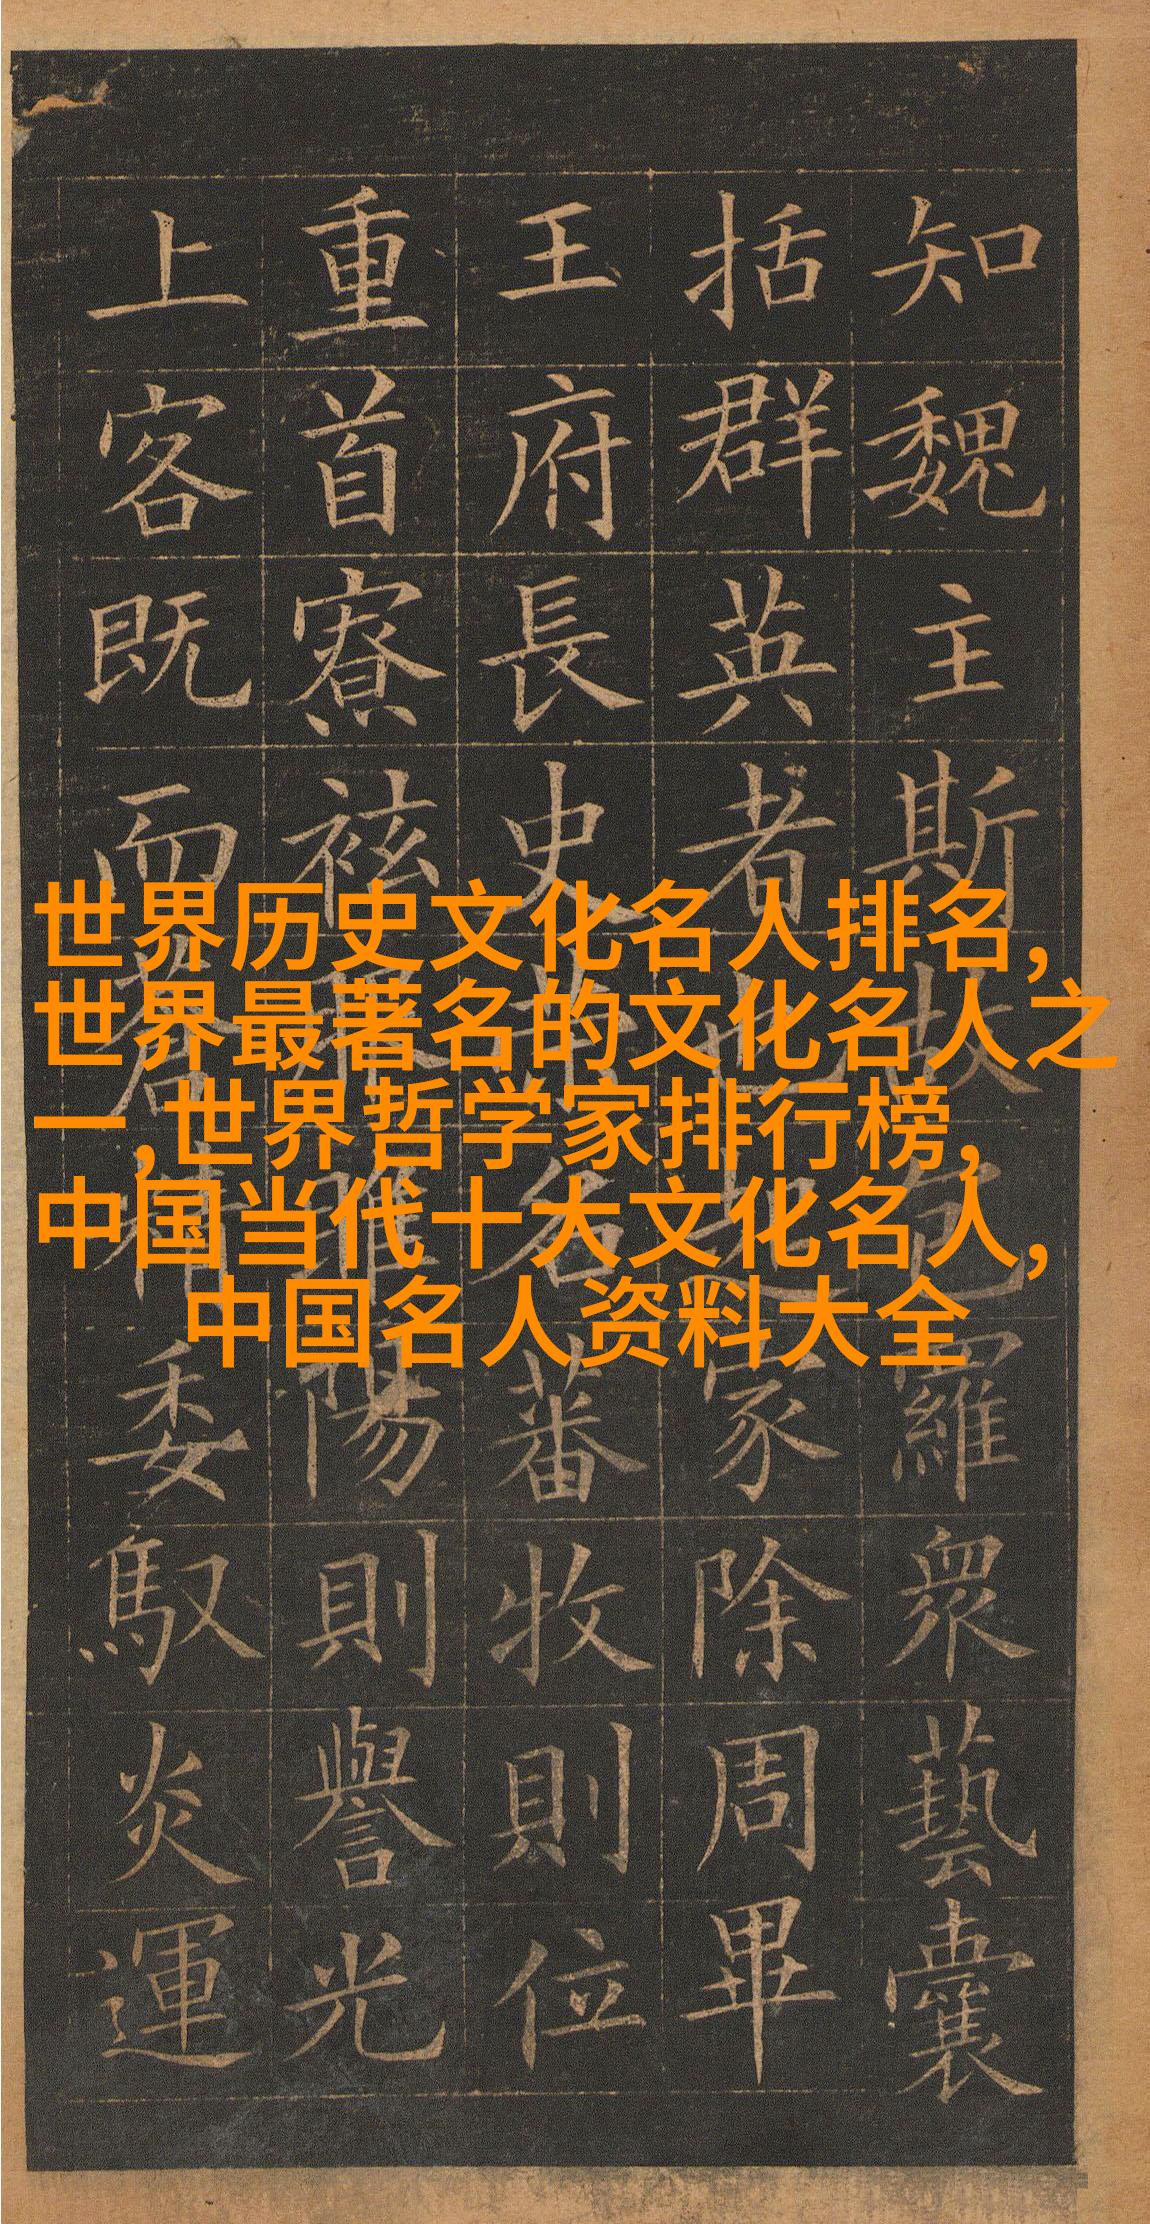 知魏主斯故包羅眾藝囊
括群英者也起家除周畢
王府長史榮名蕃牧則位
重首寮袛服睢陽則譽光
上客既而蒼精委馭炎運
世界历史文化名人排名,
世界最著名的文化名人之
一,世界哲学家排行榜,
中国当代十大文化名人,
中国名人资料大全